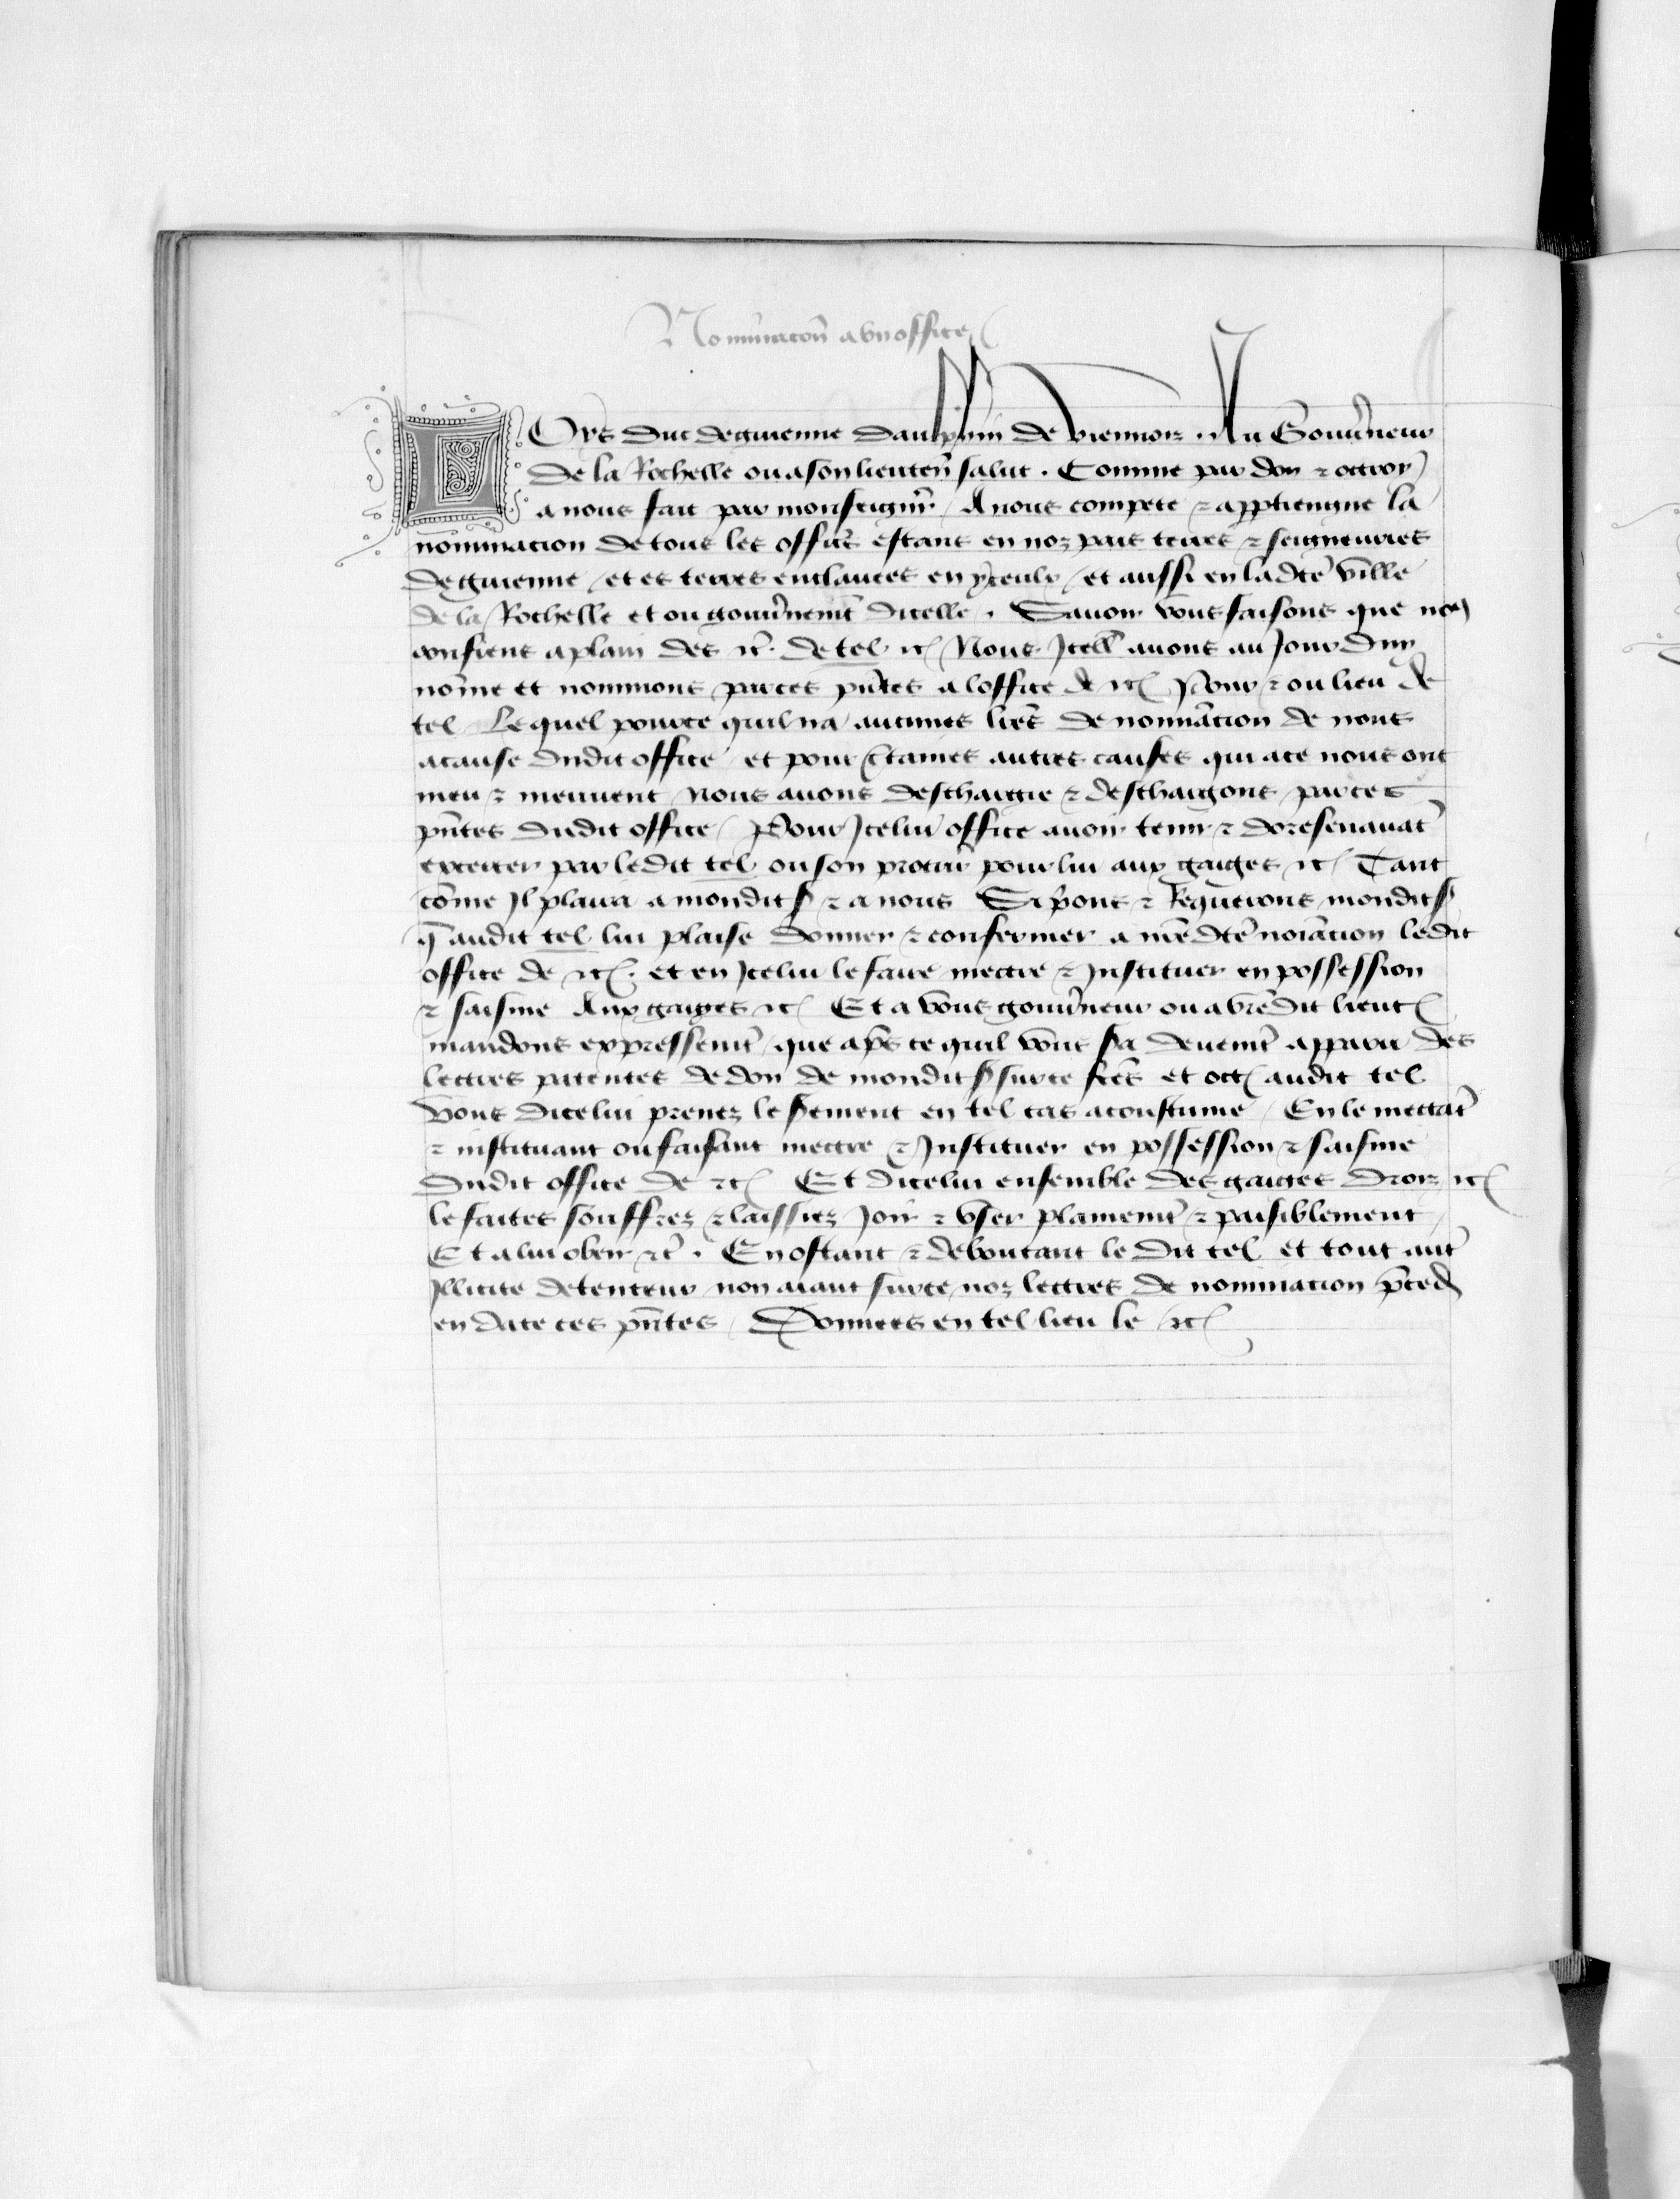 Nominacon a un office
Loys duc de guienne daulphin de viennois . Au Gouuneur
de la Rochelle ou a son lieuten salut . Comme par don & octroy
a nous fait par monseignr / A nous compete & apptiengne la
nominacion de tous les offices estans en noz pais terres & seigneuries
de guienne / et es terres enclauees en yceulx / et aussi en ladte ville
de la Rochelle et ou gouunemt dicelle . Sauoir vous faisons que nous
confiens a plain des &c . de tel &c Nous Icell auons au Jour duy
nomme et nommons par ces pntes a loffice de &c Pour & ou lieu de
tel Le quel pource quil na aucunes lres de nominacion de nous
a cause dudit office et pour ctaines autres causes qui a ce nous ont
meu & meuuent Nous auons deschargie & deschargons par ces
pntes dudit office / Pour Icelui office auoir tenir & doresenauat
exercer par ledit tel ou son procur pour lui aux gaiges &c Tant
come Il plaira a mondit s & a nous Si pons & Requerons mondit s
q audit tel lui plaise donner & confermer a nre dte noiacion ledit
office de &c . et en Icelui le faire mectre & Instituer en possession
& saisine Aux gaiges &c Et a vous gouuneur ou a vredit lieut
mandons expressemt / que aps ce quil vous sa deuemt apparu des
lectres patentes de don de mondit s sur ce fces et oct audit tel
Vous dicelui prenez le sement en tel cas acoustume / En le mectat
& instituant ou faisant mectre & Instituer en possession & saisine
dudit office de &c Et dicelui ensemble des gaiges droiz &c
le faites souffrez & laissiez Joir & user plainemt & paisiblement
Et a lui obeir &c . En ostant & deboutant le dit tel et tout aut
Illicite detenteur non aiant sur ce noz lectres de nominacion pced
en date ces pntes / Donnees en tel lieu le &c